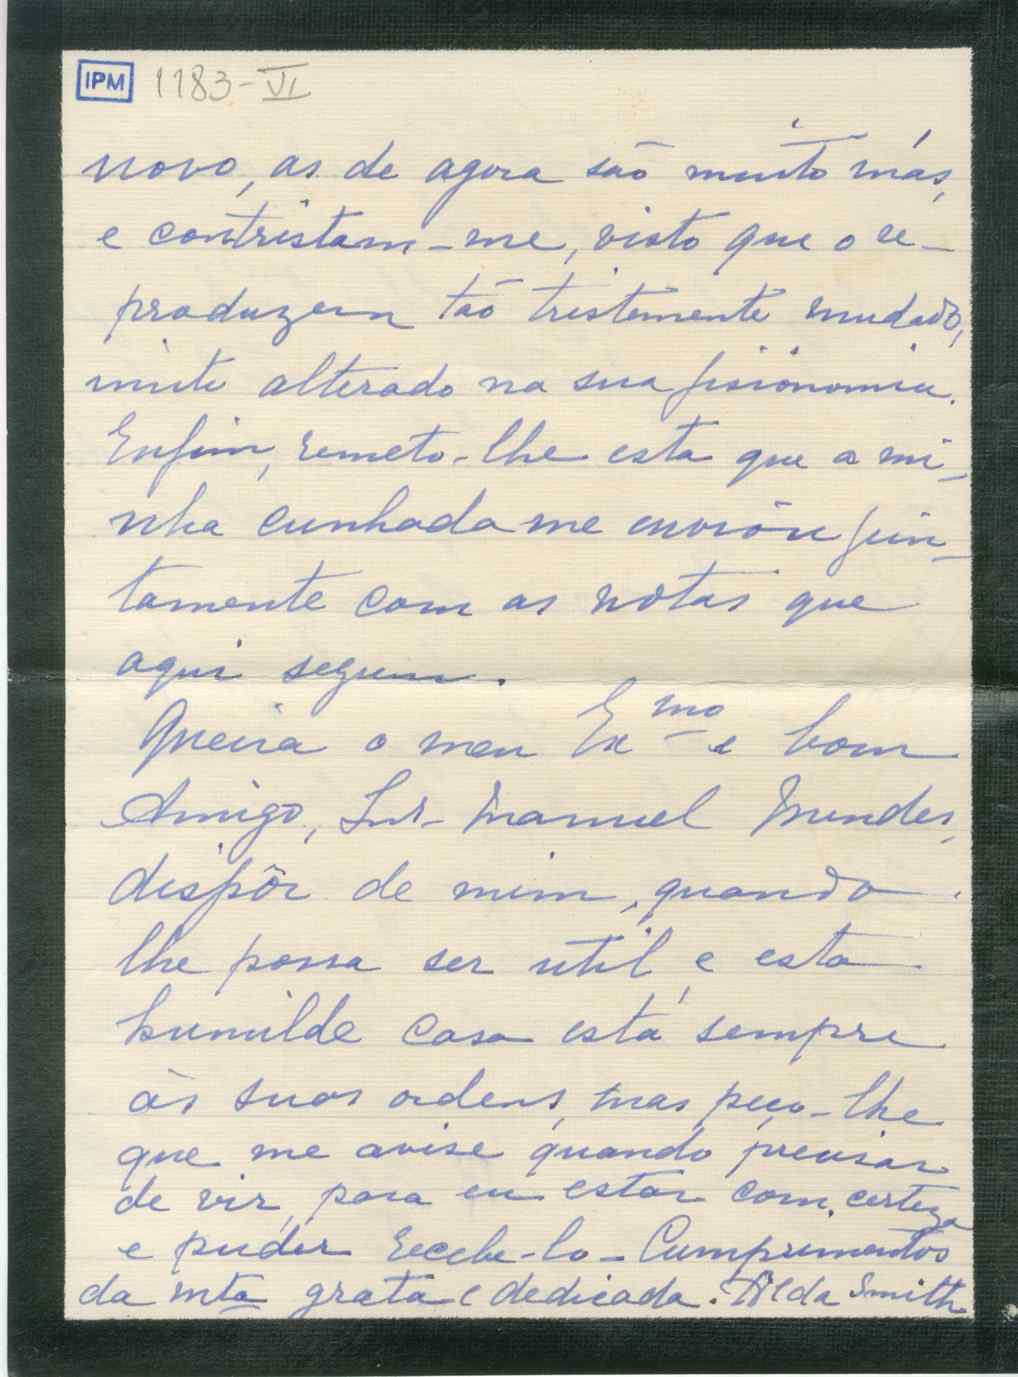 IPM 1183-VI
novo, as de agora são muito más,
e contristam-me, visto que o re-
produzem tão tristemente mudado,
muito alterado na sua fisionomia.
Enfim, remeto-lhe esta que a mi-
nha cunhada me enviou jun-
tamente com as notas que
aqui seguem.
Queira o meu Exmo e bom
Amigo, Snr. Manuel Mendes,
dispôr de mim, quando
lhe possa ser util, e esta
humilde casa está sempre
às suas ordens, mas peço-lhe
que me avise quando precisar
de vir, para eu estar com certeza
e puder recebe-lo - Cumprimentos
da mta grata e dedicada. Alda Smith